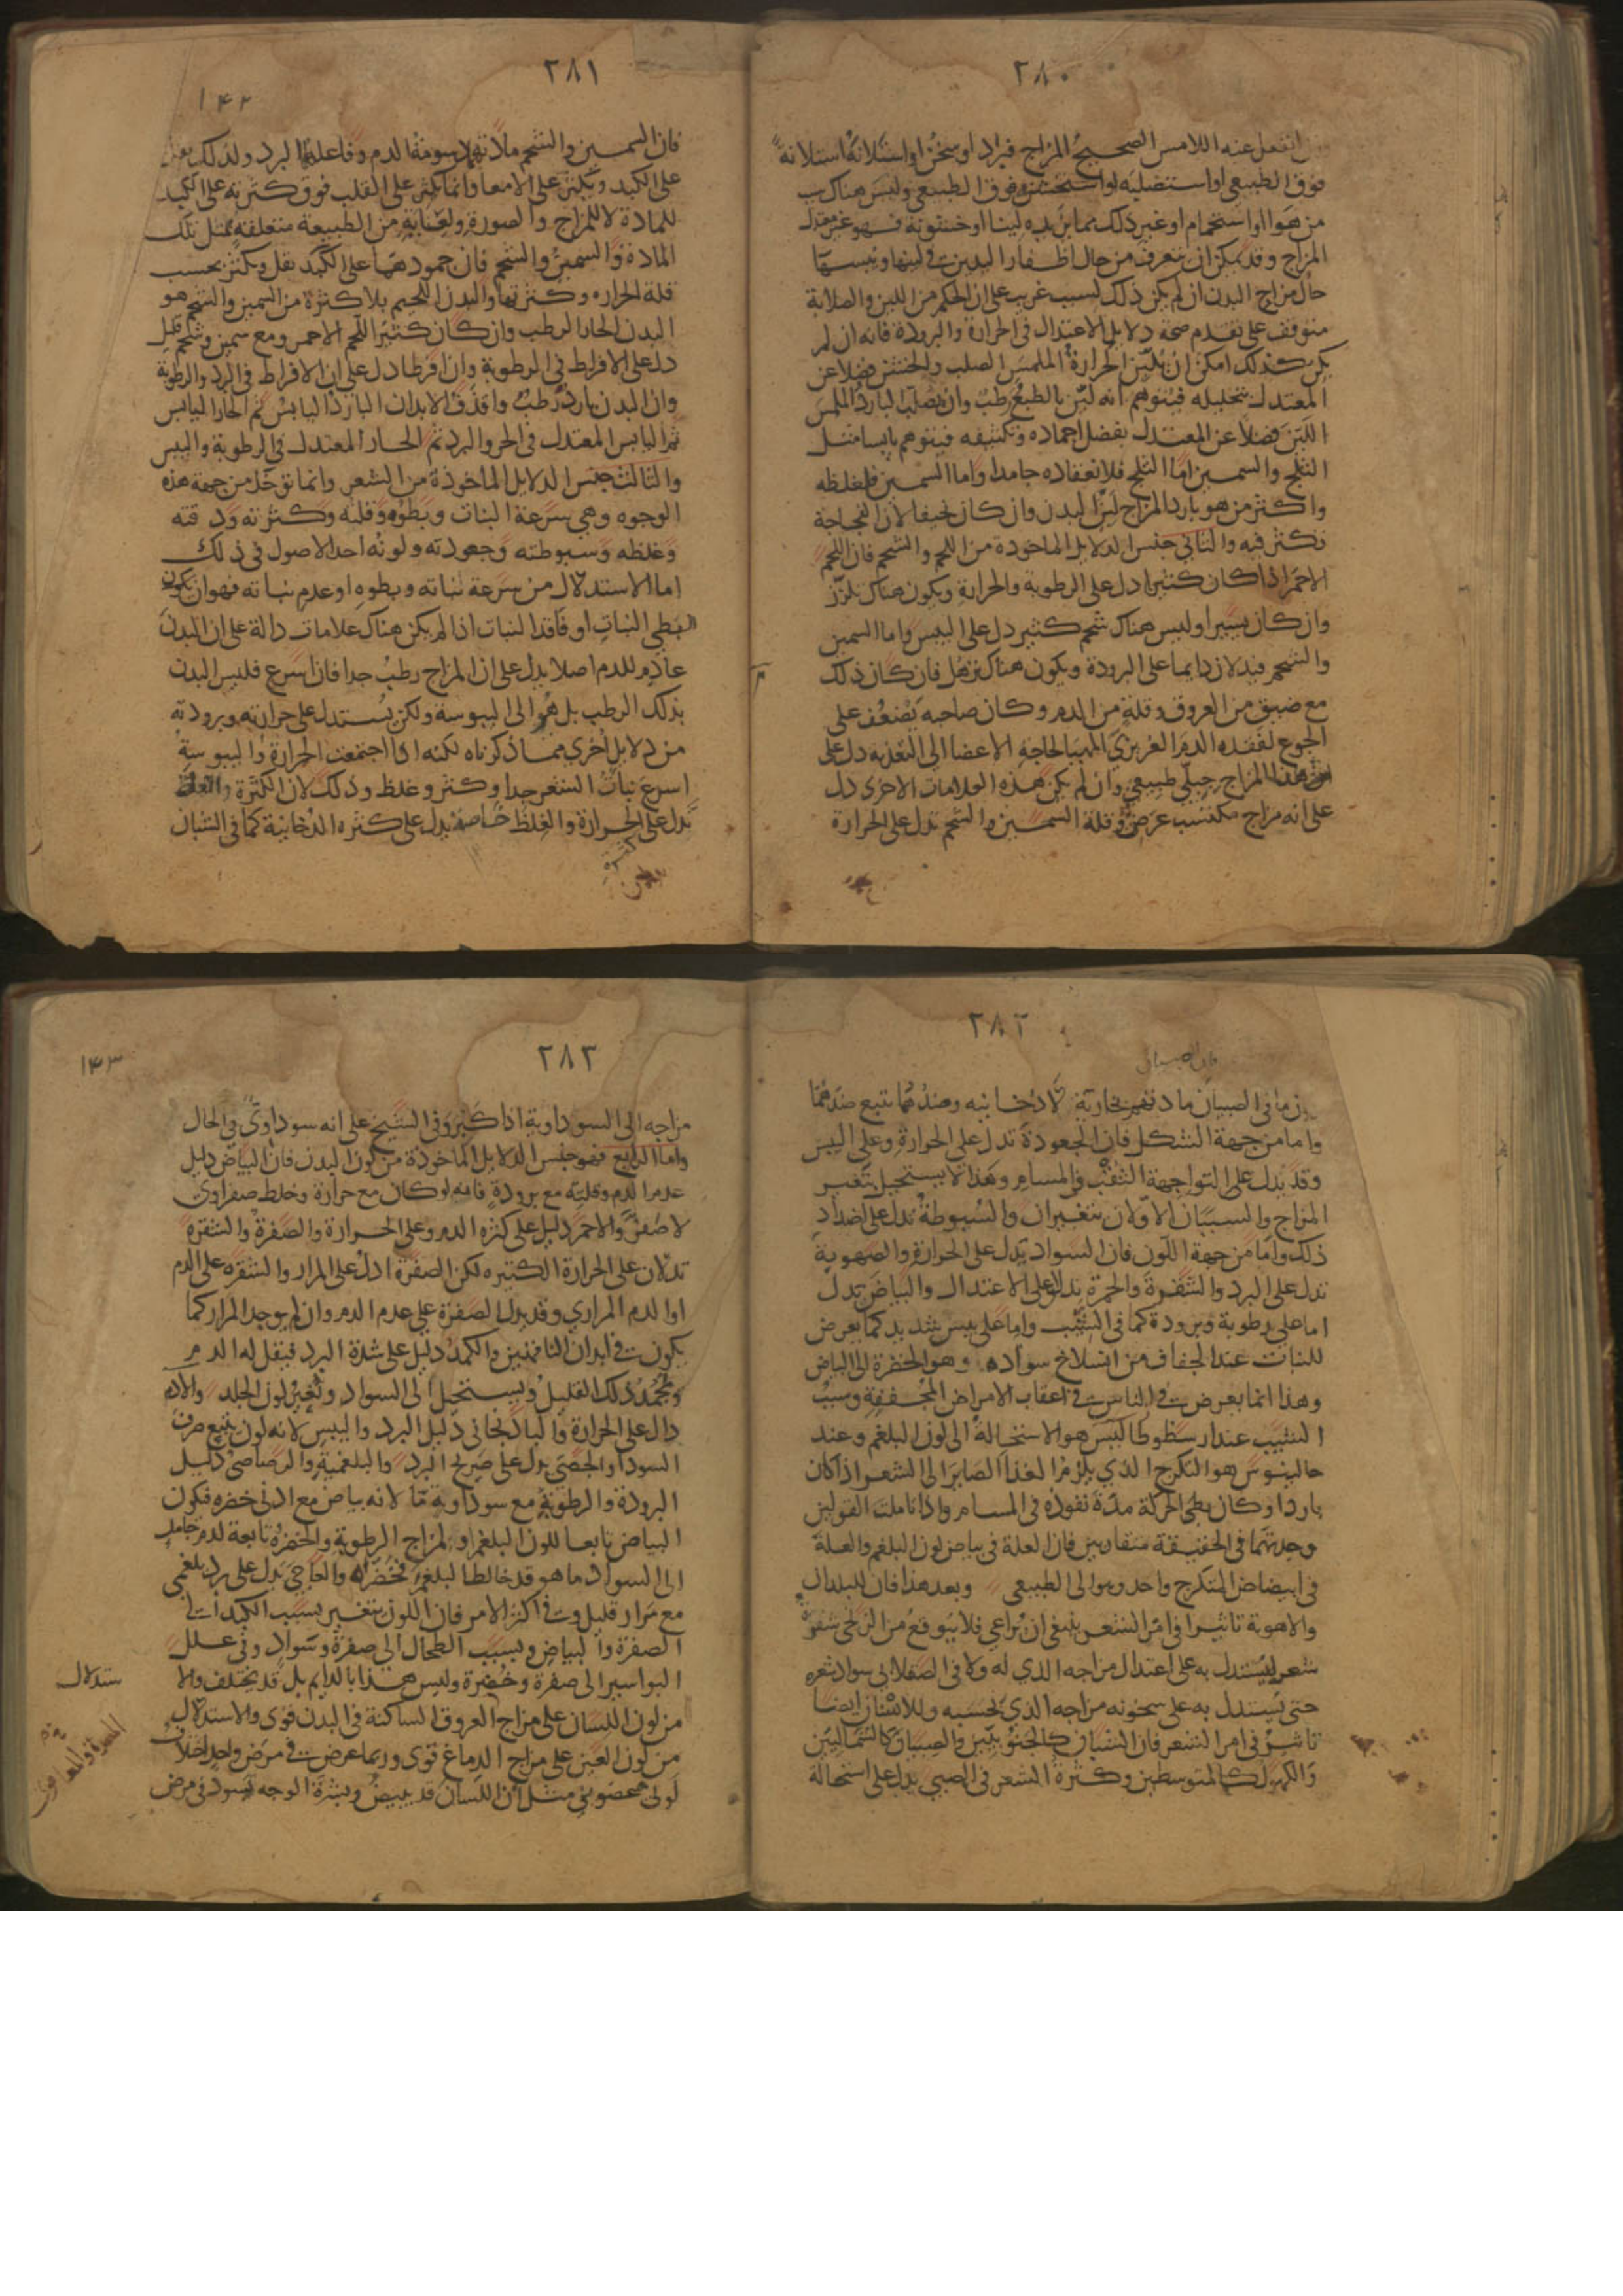 ٢٨٠
انفعل عنه اللامس الصحيح المزاج فبرد او سخن او استلانه استلانة
فوق الطبيعي او استصلبه او استخشنه فوق الطبيعي وليس هناك سبب
من هواا واستحمام او غير ذلك مما يزيده لينا او خشونة فهو غير معتدل
المزاج وقد يمكن ان يتعرف من حال اظفار اليدين في لينها ويبسها
حال مزاج البدن ان لم يكن ذلك لسبب غريب على ان الحكم من اللين والصلابة
متوقف على تقدم صحة دلايل الاعتدال في الحرارة والبرودة فانه ان لم
يكن كذلك امكن ان يلين الحرارة الملمس الصلب والخشن فضلا عن
المعتدل بتحليله فيتوهم انه لين بالطبع رطب وان يصلب البارد الملمس
اللين فضلا عن المعتدل بفضل اجماده وتكثيفه فيتوهم يابسا مثل
الثلج والسمين اما الثلج فلانعقاده جامدا واما السمين فلغلظه
واكثر من هو بارد المزاج لين البدن وان كان نحيفا لان الفجاجة
تكثر فيه والثاني جنس الدلايل الماخوذة من اللحم والشحم فان اللحم
الاحمر اذا كان كثيرا دل على الرطوبة والحرارة ويكون هناك تلزز
وان كان يسيرا وليس هناك شحم كثير دل على اليبس واما السمين
والشحم فيدلان دايما على البرودة ويكون هناك ترهل فان كان ذلك
مع ضيق من العروق وقلة من الدم وكان صاحبه يضعف على
الجوع لفقده الدم الغريزي المهيا لحاجة الاعضا الى التغذيه دل على
ان هذا المزاج جبلي طبيعي وان لم يكن هذه العلامات الاخرى دل
على انه مزاج مكتسب عرضي وقلة السمين والشحم تدل على الحرارة
٢٨١
١٤٢
فان السمين والشحم مادتهما دسومة الدم وفاعلهما البرد ولذلك يقل
على الكبد ويكثر على الامعا وانما يكثر على القلب فوق كثرته على الكبد
للمادة لا للمزاج والصورة ولعناية من الطبيعة متعلقة بمثل تلك
المادة والسمين والشحم فان جمودهما على الكبد يقل ويكثر بحسب
قلة الحراره وكثرتها والبدن اللحيم بلا كثرة من السمين والشحم هو
البدن الحار الرطب وان كان كثير اللحم الاحمر ومع سمين وشحم قليل
دل على الافراط في الرطوبة وان افرطا دل على ان الافراط في البرد والرطوبة
وان البدن بارد رطب واقضف الابدان البارد اليابس ثم الحار اليابس
ثم اليابس المعتدل في الحر والبرد ثم الحار المعتدل في الرطوبة واليبس
والثالث جنس الدلايل الماخوذة من الشعر وانما توخذ من جهة هذه
الوجوه وهي سرعة النبات وبطوه وقلته وكثرته ودقته
وغلظه وسبوطته وجعودته ولونه احد الاصول في ذلك
اما الاستدلال من سرعة نباته وبطوه او عدم نباته فهو ان يكون
البطي النبات او فاقد النبات اذا لم يكن هناك علامات دالة على ان البدن
عادم للدم اصلا يدل على ان المزاج رطب جدا فان اسرع فليس البدن
بذلك الرطب بل هو الى اليبوسة ولكن يستدل على حرارته وبرودته
من دلايل اخرى مما ذكرناه لكنه اذا اجتمعت الحرارة واليبوسة
اسرع نبات الشعر جدا وكثر وغلظ وذلك لان الكثرة والغلظ
تدل على الحرارة والغلظ خاصة يدل على كثره الدخانية كما في الشبان
٢٨٢
فان الصبيان
دون ما في الصبيان مادتهم بخارية لا دخانيه وضدهما يتبع ضدهما
واما من جهة الشكل فان الجعودة تدل على الحرارة وعلى اليبس
وقد يدل على التوا جهة الثقب في المسام وهذا لا يستحيل بتغير
المزاج والسببان الاولان يتغيران والسبوطة تدل على اضداد
ذلك واما من جهة اللون فان السواد يدل على الحرارة والصهوبة
تدل على البرد والشقرة والحمرة يدلان على الاعتدال والبياض تدل
اما على رطوبة وبرودة كما في الشيب واما على يبس شديد كما يعرض
للنبات عند الجفاف من انسلاخ سواده وهو الخضرة الى البياض
وهذا انما يعرض في الناس في اعقاب الامراض المجففة وسبب
الشيب عند ارسطوطاليس هو الاستحالة الى لون البلغم وعند
جالينوس هو التكرج الذي يلزم الغذا الصاير الى الشعر اذا كان
باردا وكان بطى الحركة مدة نفوذه في المسام واذا تاملت القولين
وجدتهما في الحقيقة متقاربين فان العلة في بياض لون البلغم والعلة
في ابيضاض المتكرج واحد وهو الى الطبيعي وبعد هذا فان للبلدان
والاهوية تاثيرا في امر الشعر ينبغى ان يراعي فلا يتوقع من الزنجى شقرة
شعر ليستدل به على اعتدال مزاجه الذي له ولا في الصقلابي سواد شعره
حتى يستدل به على سخونه مزاجه الذي يحسبه وللاسنان ايضا
تاثير في امر الشعر فان الشبان كالجنوبيين والصبيان كالشماليين
والكهول كالمتوسطين وكثرة الشعر في الصبي يدل على استحالة
٢٨٣
١٤٣
مزاجه الى السوداوية اذا كبر وفي الشيخ على انه سوداوي في الحال
واما الرابع فهو جنس الدلايل الماخوذة من لون البدن فان البياض دليل
عدم الدم وقلته مع برودة فانه لو كان مع حرارة وخلط صفراوى
لاصفر والاحمر دليل على كثره الدم وعلى الحرارة والصفرة والشقرة
تدلان على الحرارة الكثيره لكن الصفرة ادل على المرار والشقره على الدم
او الدم المراري وقد يدل الصفرة على عدم الدم وان لم يوجد المرار كما
يكون في ابدان الناقهين والكمد دليل على شدة البرد فيقل له الدم
ويجمد ذلك القليل ويستحيل الى السواد وتغير لون الجلد والادم
دال على الحرارة والباذنجاني دليل البرد واليبس لانه لون يتبع صرف
السودا والجصى يدل على صريح البرد والبلغمية والرصاصى دليل
البرودة والرطوبة مع سوداوية ما لانه بياض مع ادنى خضره فيكون
البياض تابعا للون البلغم او لمزاج الرطوبة والخضرة تابعة لدم جامد
الى السواد ما هو قد خالط البلغم فخضره والعاجي يدل على برد بلغمي
مع مرار قليل وفي اكثر الامر فان اللون يتغير بسبب الكبد الى
الصفرة والبياض وبسبب الطحال الى صفرة وسواد وفي علل
البواسير الى صفرة وخضرة وليس هذا بالدايم بل قد يختلف والا
ستدلال
من لون اللسان على مزاج العروق الساكنة في البدن قوى والاستدلال
من لون العين على مزاج الدماغ قوى وربما عرض في مرض واحد اختلاف
لونى عضوين مثل ان اللسان قد يبيض وبشرة الوجه تسود في مرض